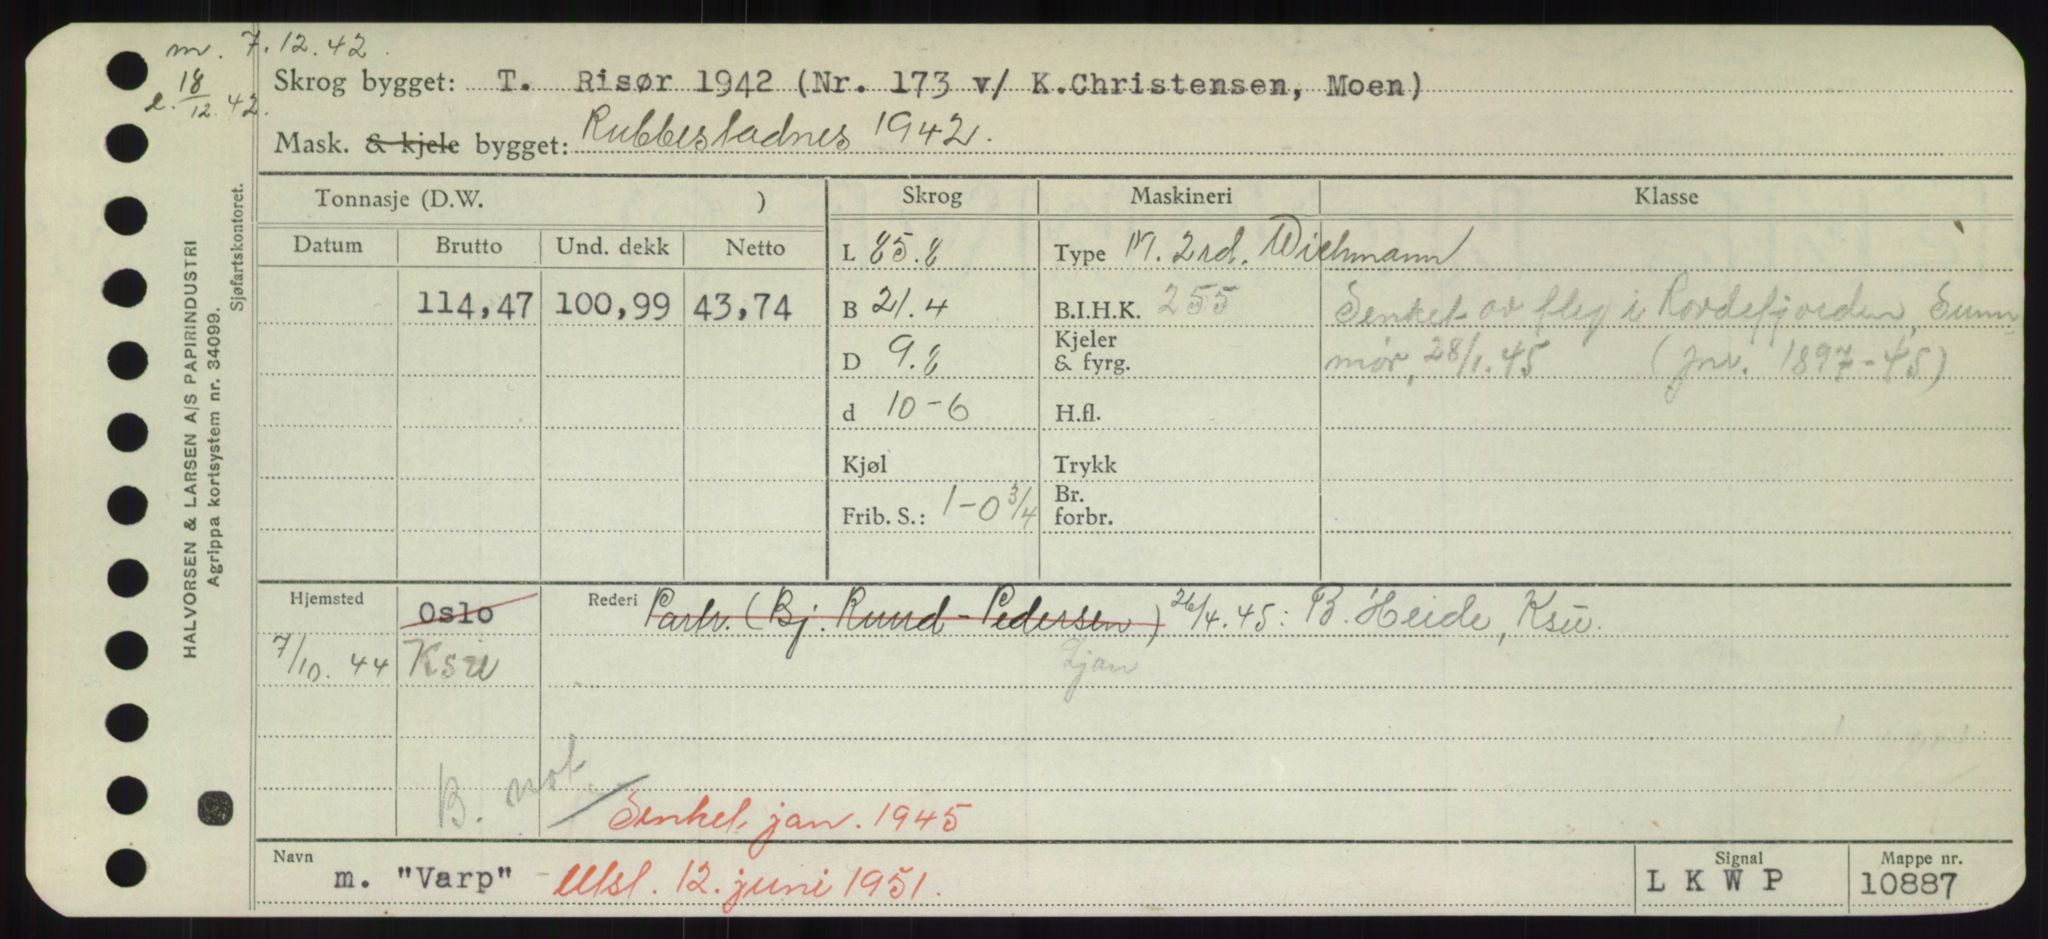 m. 7.12.42.
e. 18/12.42.
Skrog bygget: T. Risør 1942 (Nr. 173 v/ K.Christensen, Moen)
Mask. & kjele bygget: Rubbestadnes 1942.
Tonnasje (D.W. )
Skrog
Maskineri
Klasse
Datum
Brutto
Und. dekk
Netto
L 85.8
Type M. 2rd. Wichmann
114,47
100,99
43,74
B 21.4
B.I.H.K. 255
Senket av fly i Rovdefjorden, Sunn-
D 9.8
Kjeler
& fyrg.
mør, 28/1.45 (jnr. 1897-45)
d 10-6
H.fl.
Kjøl
Trykk
Frib. S.: 1-0 3/4
Br.
forbr.
Hjemsted
Oslo
Rederi Partr. (Bj. Ruud-Pedersen) 26/4.45: B. Heide, Ksu.
7/10.44 Ksu
Ljan
B. not
Senket jan. 1945
Navn
m. "Varp" Utsl. 12. juni 1951.
Signal
L K W P
Mappe nr.
10887
HALVORSEN & LARSEN A/S PAPIRINDUSTRI
Agrippa kortsystem nr. 34099.
Sjøfartskontoret.